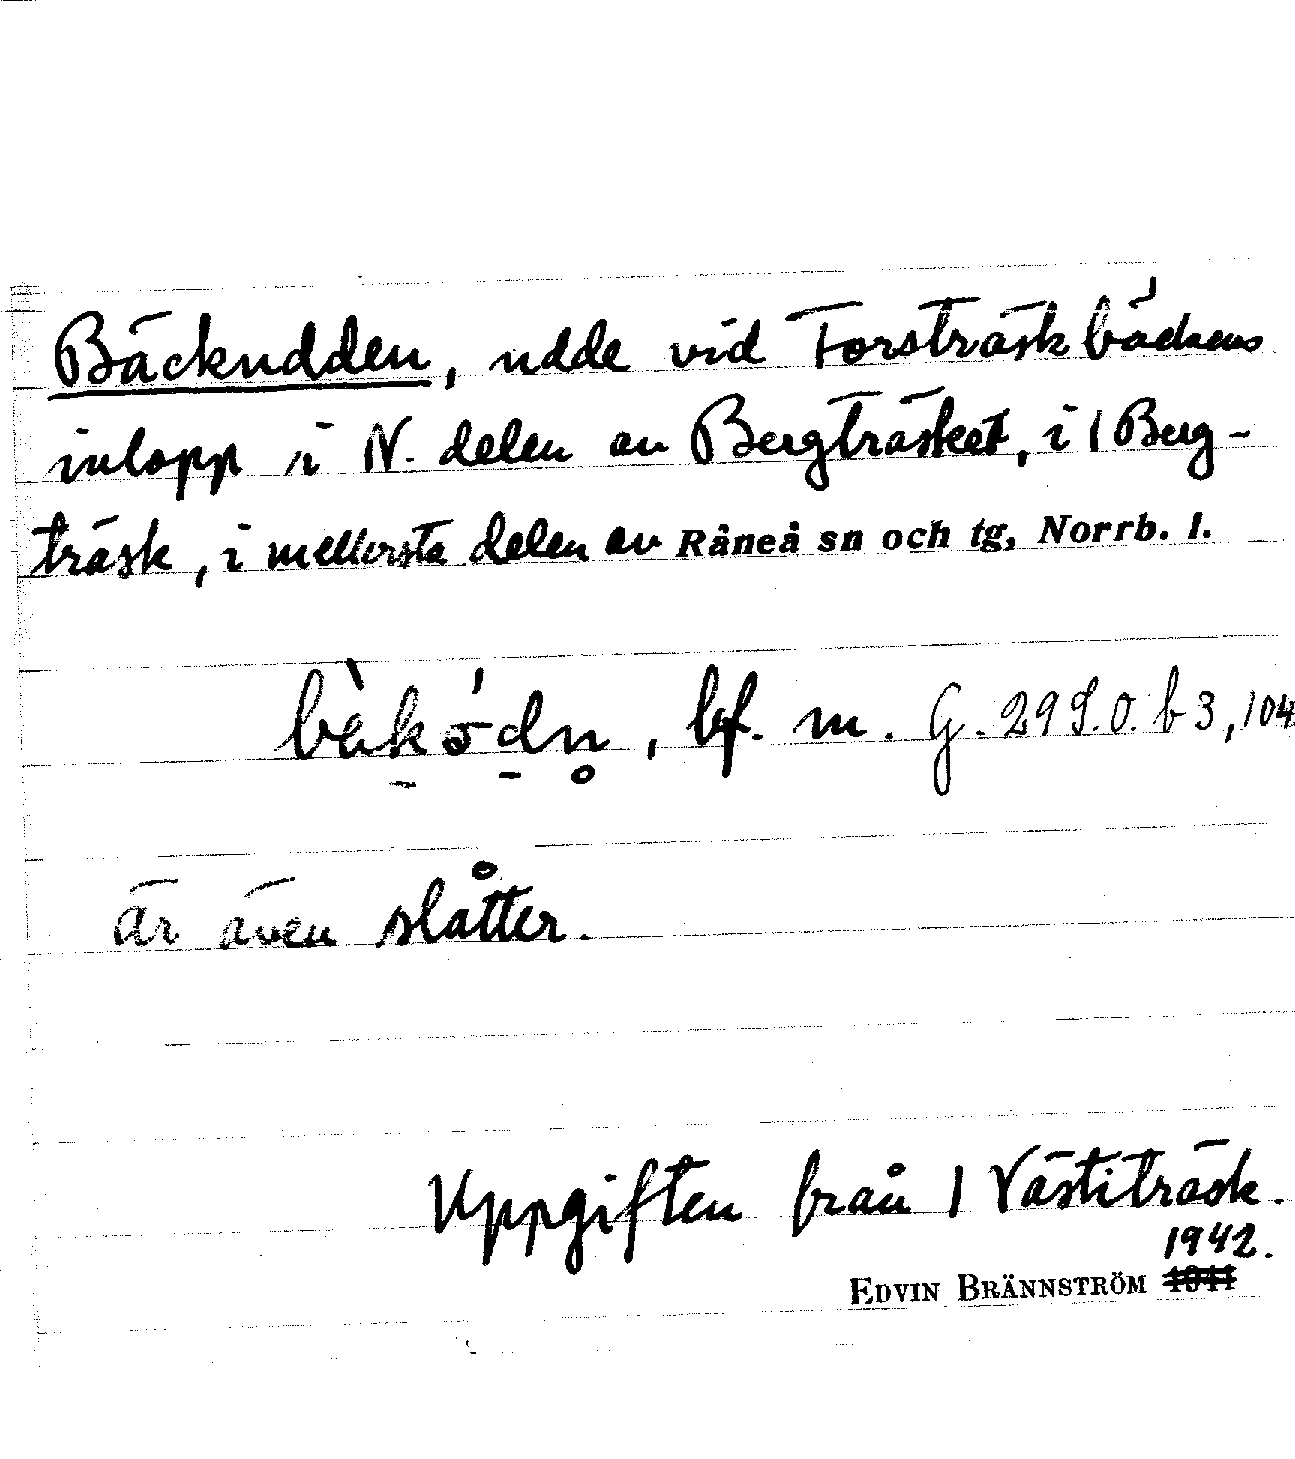 Bäckudden, udde vid Forsträskbäckens
inlopp i N. delen av Bergträsket, i 1 Berg-
träsk, i mellersta delen av Råneå sn och tg, Norrb. l.
bf. m. G. 29 S.O. b 3, 104
är även slåtter.
Uppgiften från 1 Västiträsk.
1942.
EDVIN BRÄNNSTRÖM 1941